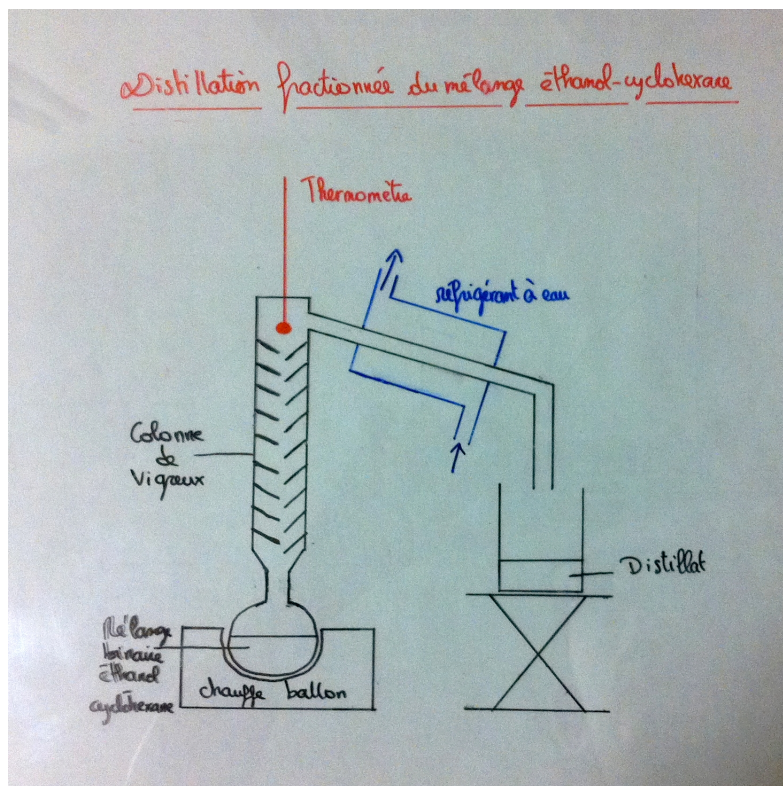 Distillation fractionnée du mélange éthanol-cyclohexane
Thermomètre
réfrigérant à eau
Colonne
de
Vigreux
Distillat
Mélange
binaire
éthanol
cyclohexane
chauffe ballon